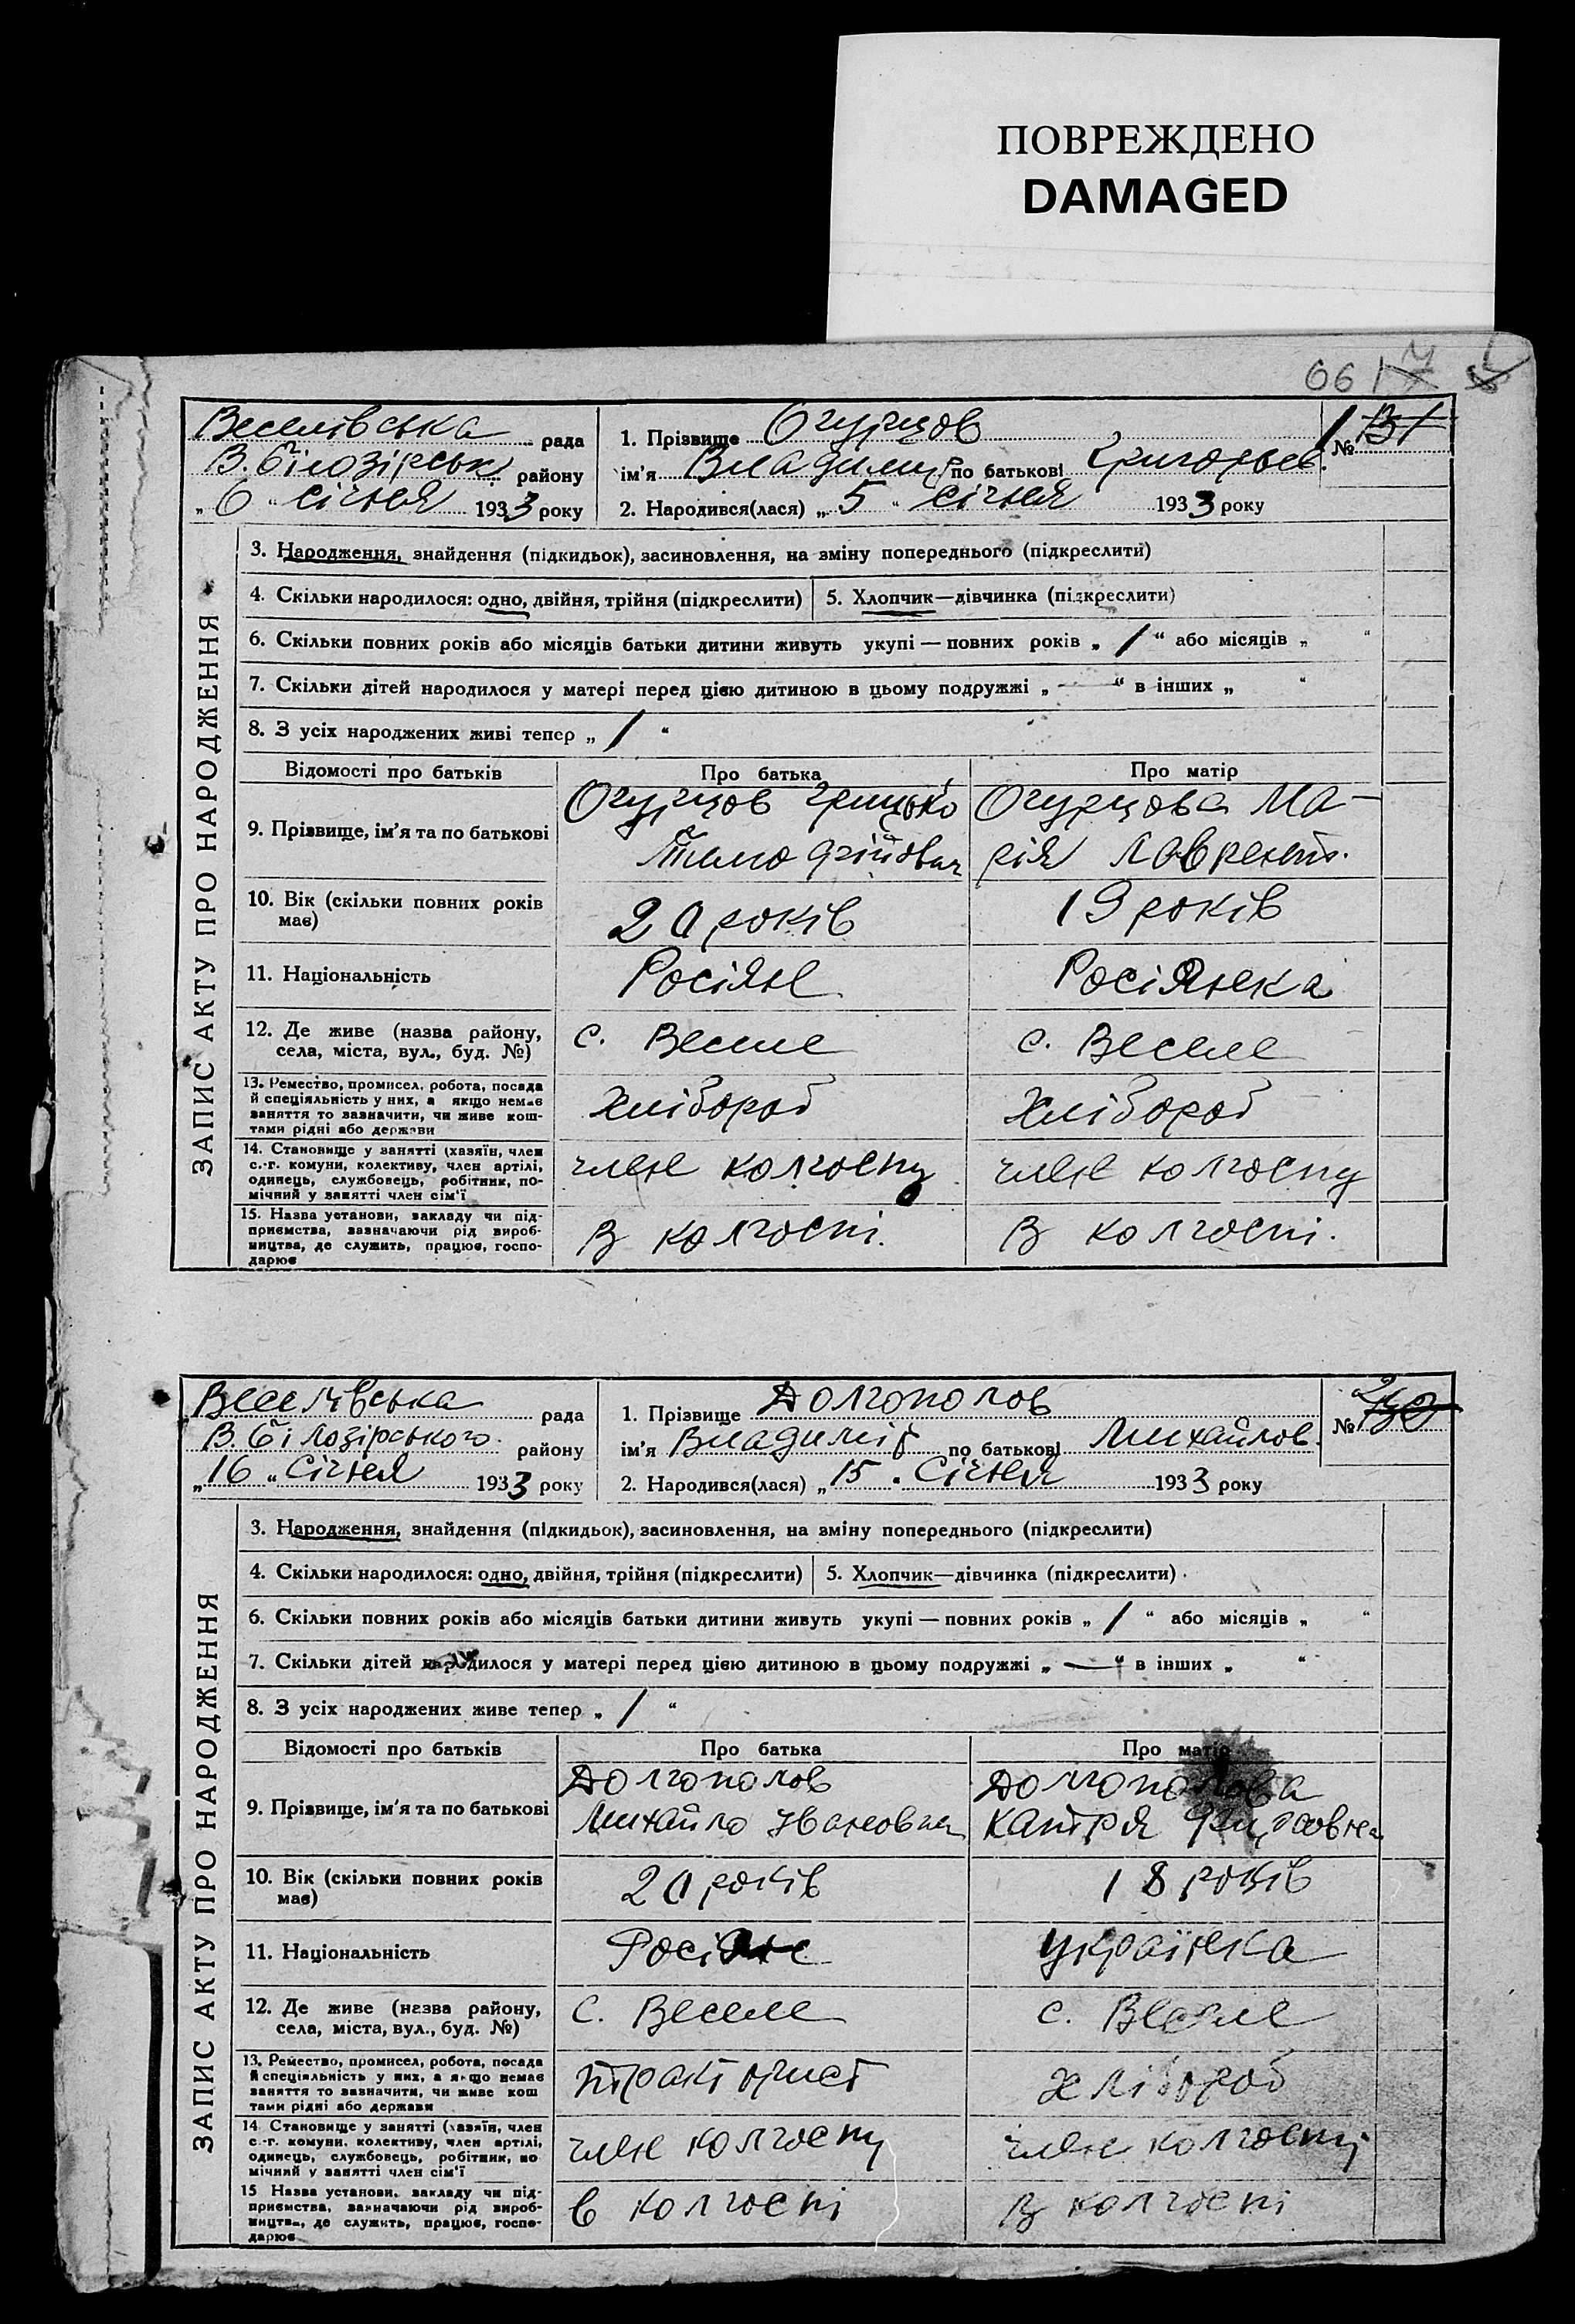 ПОВРЕЖДЕНО
DAMAGED
061
Веселівська рада
В. Білозірськ району
„ 6 “ січня 1933 року
1. Прізвище Огурцов
ім'я Владимир по батькові Григорьев.
№ 1
2. Народився(лася) „ 5 “ січня 1933 року
ЗАПИС АКТУ ПРО НАРОДЖЕННЯ
3. Народження, знайдення (підкидьок), засиновлення, на зміну попереднього (підкреслити)
4. Скільки народилося: одно, двійня, трійня (підкреслити) 5. Хлопчик—дівчинка (підкреслити)
6. Скільки повних років або місяців батьки дитини живуть укупі — повних років „ 1 “ або місяців „ “
7. Скільки дітей народилося у матері перед цією дитиною в цьому подружжі „ — “ в інших „ “
8. З усіх народжених живі тепер „ 1 “
Відомості про батьків Про батька Про матір
9. Прізвище, ім'я та по батькові Огурцов Грицько Тимофійович Огурцова Марія Лаврент.
10. Вік (скільки повних років має) 20 років 19 років
11. Національність Росіянє Росіянка
12. Де живе (назва району, села, міста, вул., буд. №) с. Веселе с. Веселе
13. Ремество, промисел, робота, посада й спеціяльність у них, а якщо немає заняття то зазначити, чи живе коштами рідні або держави хлібороб хлібороб
14. Становище у занятті (хазяїн, член с.-г. комуни, колективу, член артілі, одинець, службовець, робітник, помічний у занятті член сім'ї член колгоспу член колгоспу
15. Назва установи, закладу чи підприємства, зазначаючи рід виробництва, де служить, працює, господарює В колгоспі. В колгоспі.
Веселівська рада
В. Білозірського району
„ 16 “ Січня 1933 року
1. Прізвище Долгополов
ім'я Владимір по батькові Михайлов.
№ 2
2. Народився(лася) „ 15 “ Січня 1933 року
ЗАПИС АКТУ ПРО НАРОДЖЕННЯ
3. Народження, знайдення (підкидьок), засиновлення, на зміну попереднього (підкреслити)
4. Скільки народилося: одно, двійня, трійня (підкреслити) 5. Хлопчик—дівчинка (підкреслити)
6. Скільки повних років або місяців батьки дитини живуть укупі — повних років „ 1 “ або місяців „ “
7. Скільки дітей народилося у матері перед цією дитиною в цьому подружжі „ — “ в інших „ “
8. З усіх народжених живе тепер „ 1 “
Відомості про батьків Про батька Про матір
9. Прізвище, ім'я та по батькові Долгополов Михайло Іванович Долгополова Катря
10. Вік (скільки повних років має) 20 років 18 років
11. Національність Росіянє українка
12. Де живе (назва району, села, міста, вул., буд. №) С. Веселе с. Веселе
13. Ремество, промисел, робота, посада й спеціяльність у них, а якщо немає заняття то зазначити, чи живе коштами рідні або держави тракторист хлібороб
14. Становище у занятті (хазяїн, член с.-г. комуни, колективу, член артілі, одинець, службовець, робітник, помічний у занятті член сім'ї член колгоспу член колгоспу
15 Назва установи, закладу чи підприємства, зазначаючи рід виробництва, де служить, працює, господарює в колгоспі в колгоспі